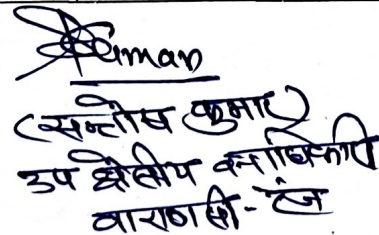 (सन्तोष कुमार)
उप क्षेत्रीय वनाधिकारी
वाराणसी-रेंज